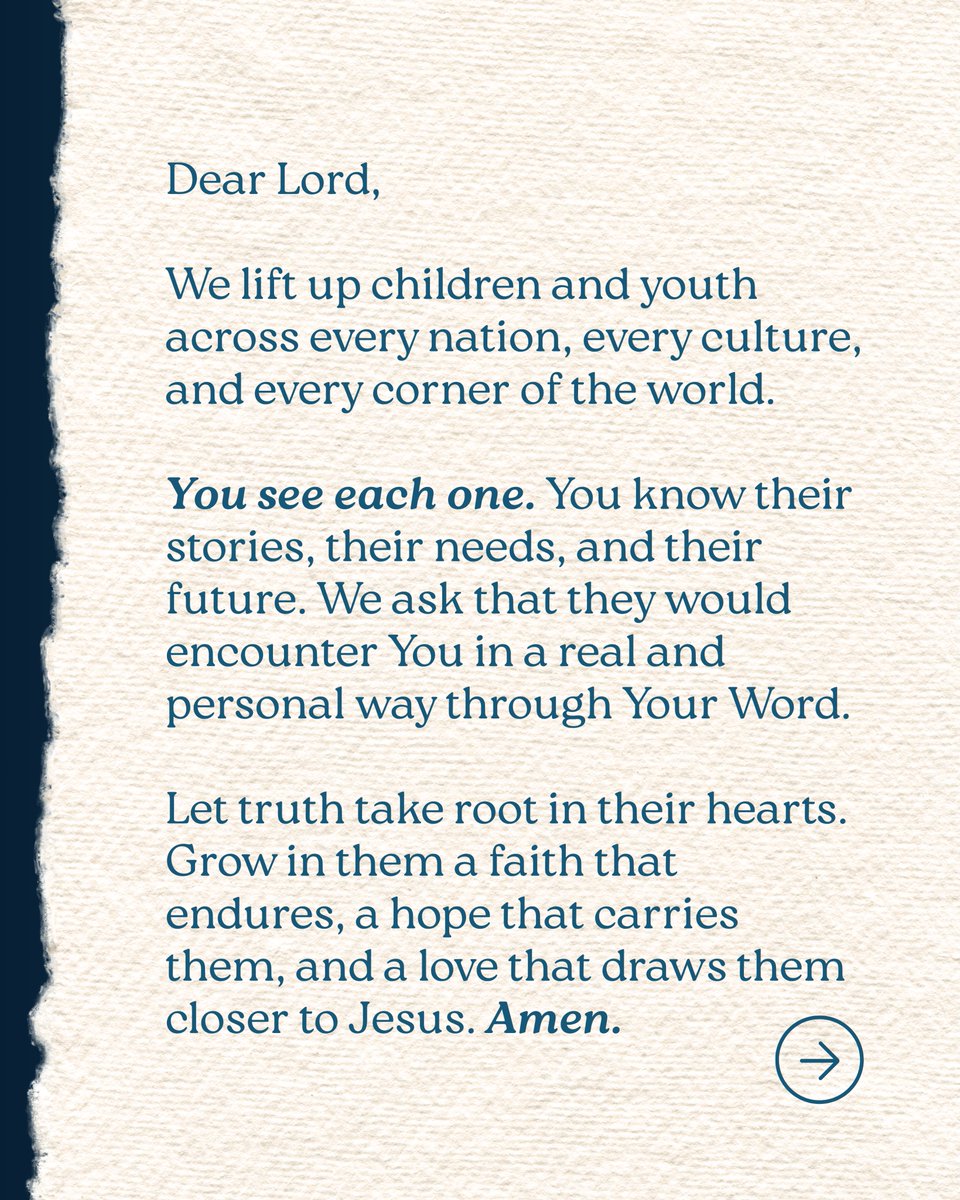 Dear Lord,
We lift up children and youth
across every nation, every culture,
and every corner of the world.
You see each one. You know their
stories, their needs, and their
future. We ask that they would
encounter You in a real and
personal way through Your Word.
Let truth take root in their hearts.
Grow in them a faith that
endures, a hope that carries
them, and a love that draws them
closer to Jesus. Amen.